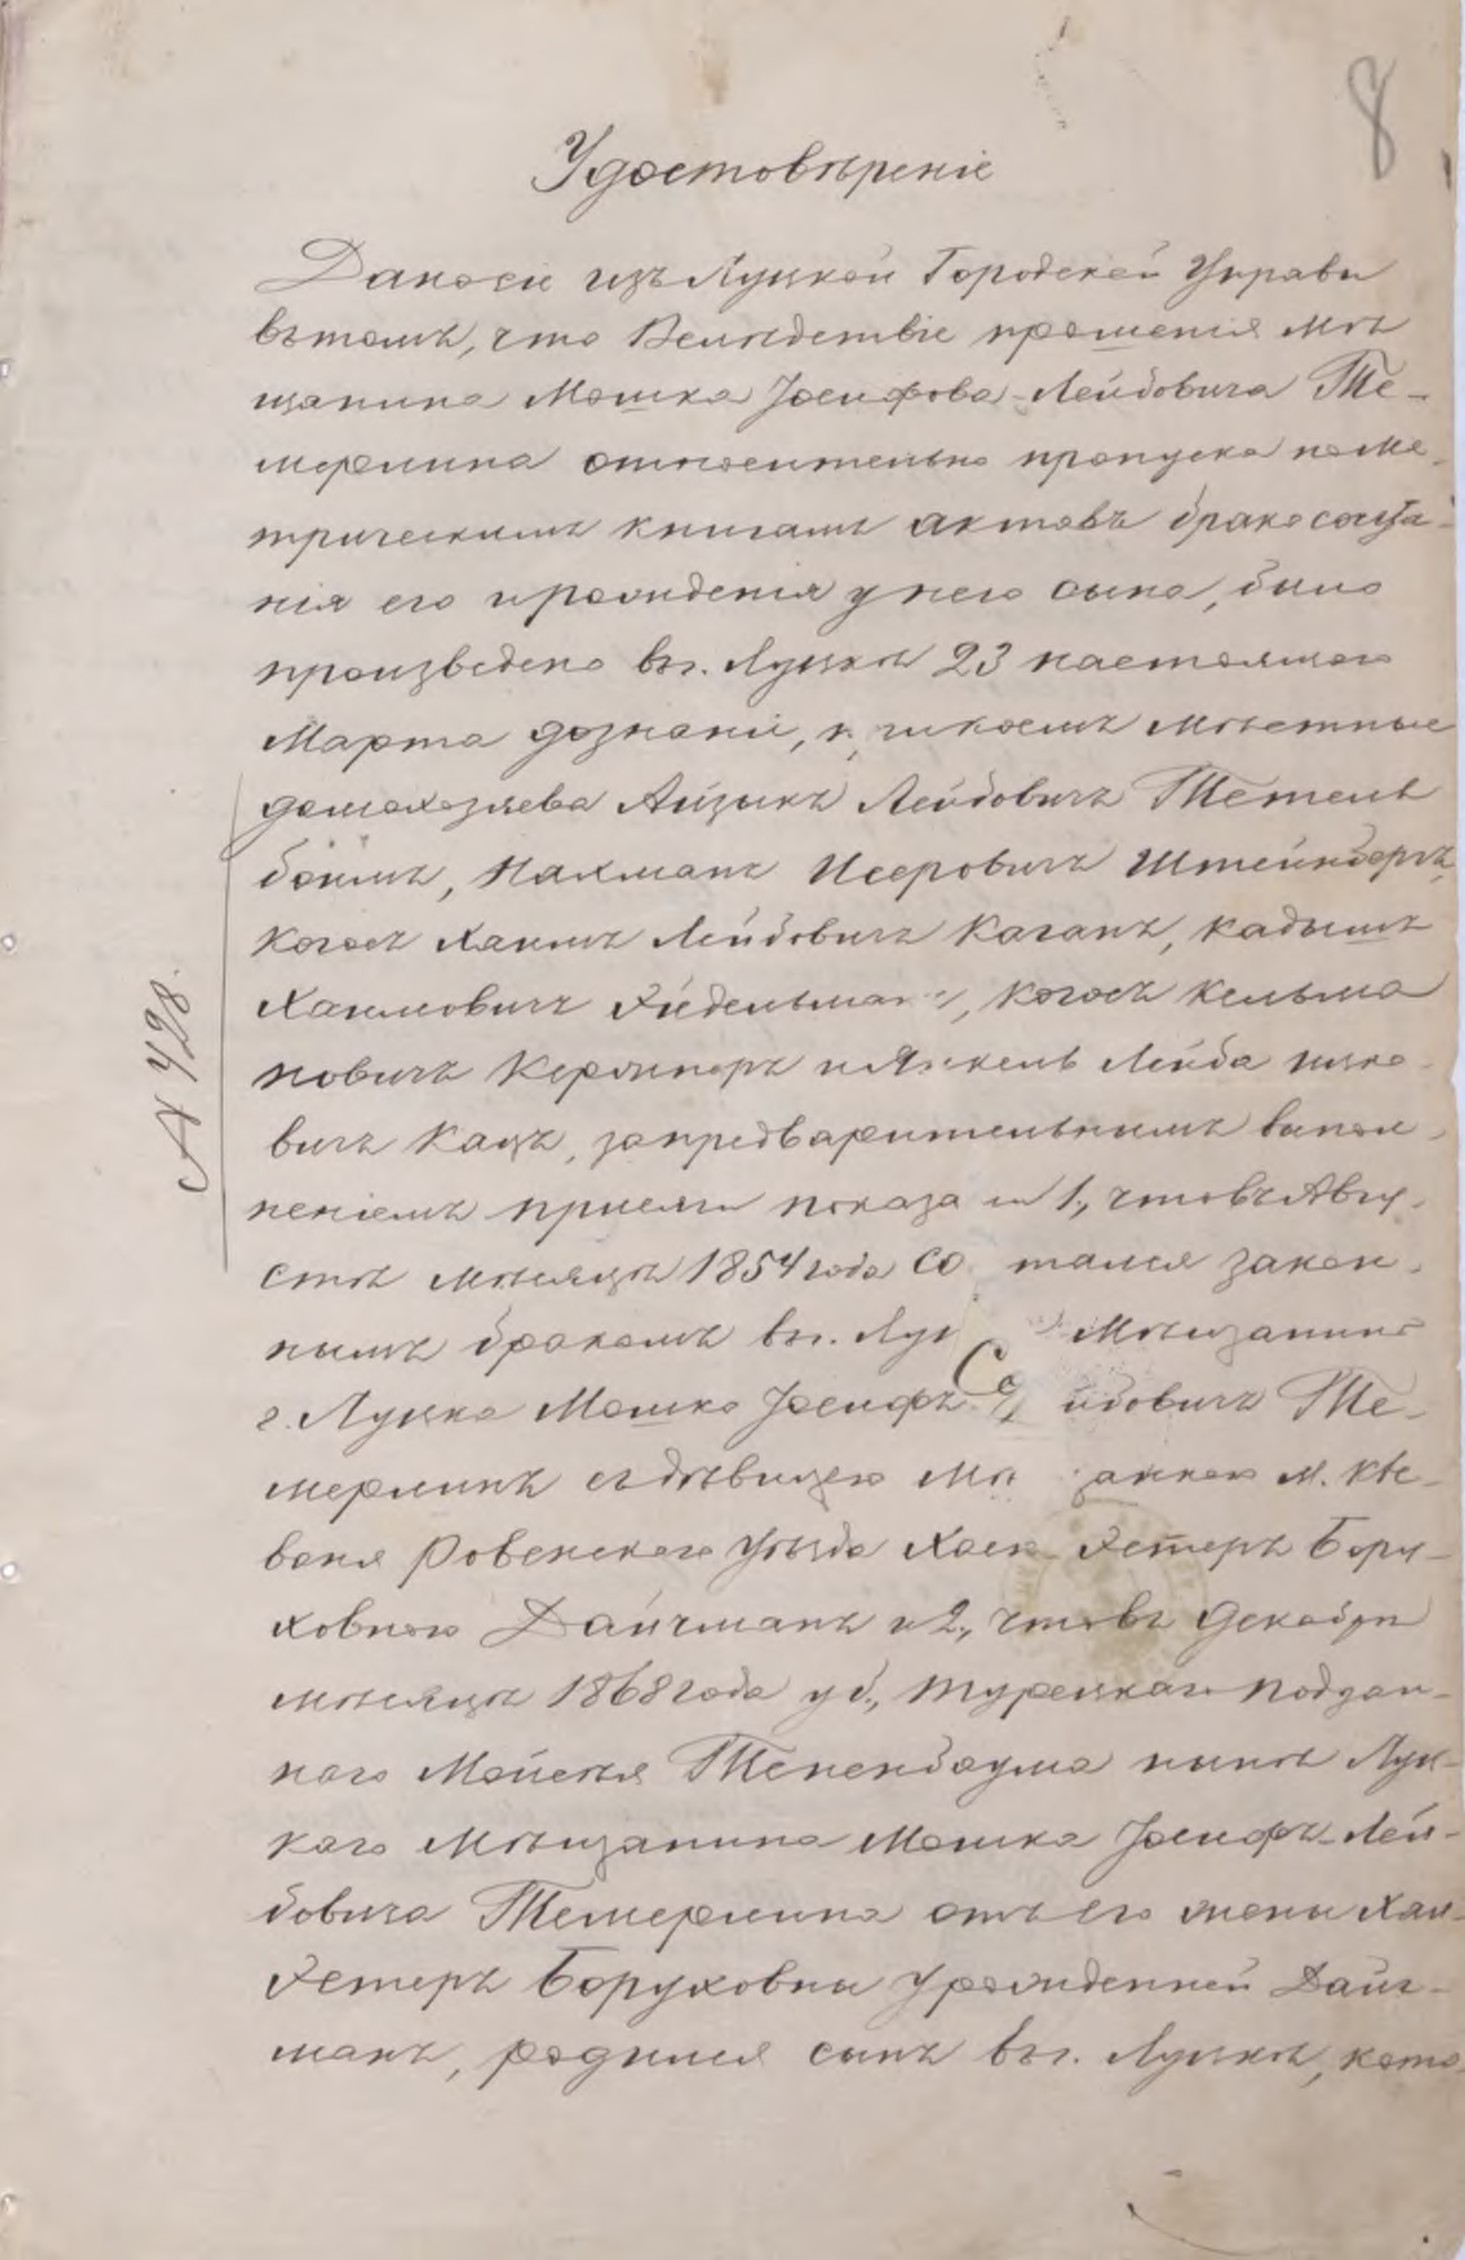 8
Удостовѣреніе
Дано сіе изъ Луцкой Городской Управы
въ томъ, что Вслѣдствіе прошенія мѣ
щанина Мошка Іосифова-Лейбовича Те-
мерлина относительно пропуска по ме-
трическимъ книгамъ актовъ бракосочета-
нія его и рожденія у него сына, было
произведено въ г. Луцкѣ 23 настоящаго
Марта дознаніе, при коемъ мѣстные
домохозяева Айзыкъ Лейбовичъ Тетель
боймъ, Нахманъ Исеровичъ Штейнбергъ,
Когосъ Хаимъ Лейбовичъ Каганъ, Кадышъ
Хаимовичъ Фидельман, Когосъ Кельма
новичъ Керлинеръ и Янкель Лейба Ицко-
вичъ Кацъ, за предварительнымъ выпол-
неніемъ присяги показа ли 1, что въ Авгу-
стѣ мѣсяцѣ 1854 года со тался закон-
нымъ бракомъ въ г. Луц Мѣщанинъ
г. Луцка Мошко Іосифъ йбовичъ Те-
мерлинъ съ дѣвицею Мѣ занкою м. Кле-
ваня Ровенскаго Уѣзда Хаею Эстеръ Бору-
ховною Дайчманъ и 2, что въ Декабрѣ
мѣсяцѣ 1868 года у б, турецкаго поддан-
наго Мойсея Тененбаума нынѣ Луц-
каго Мѣщанина Мошка Іосифъ-Лей-
бовича Темерлина отъ его жены Хаи-
Эстеръ Боруховны урожденной Дайч-
манъ, родился сынъ въ г. Луцкѣ, кото
№ 428.